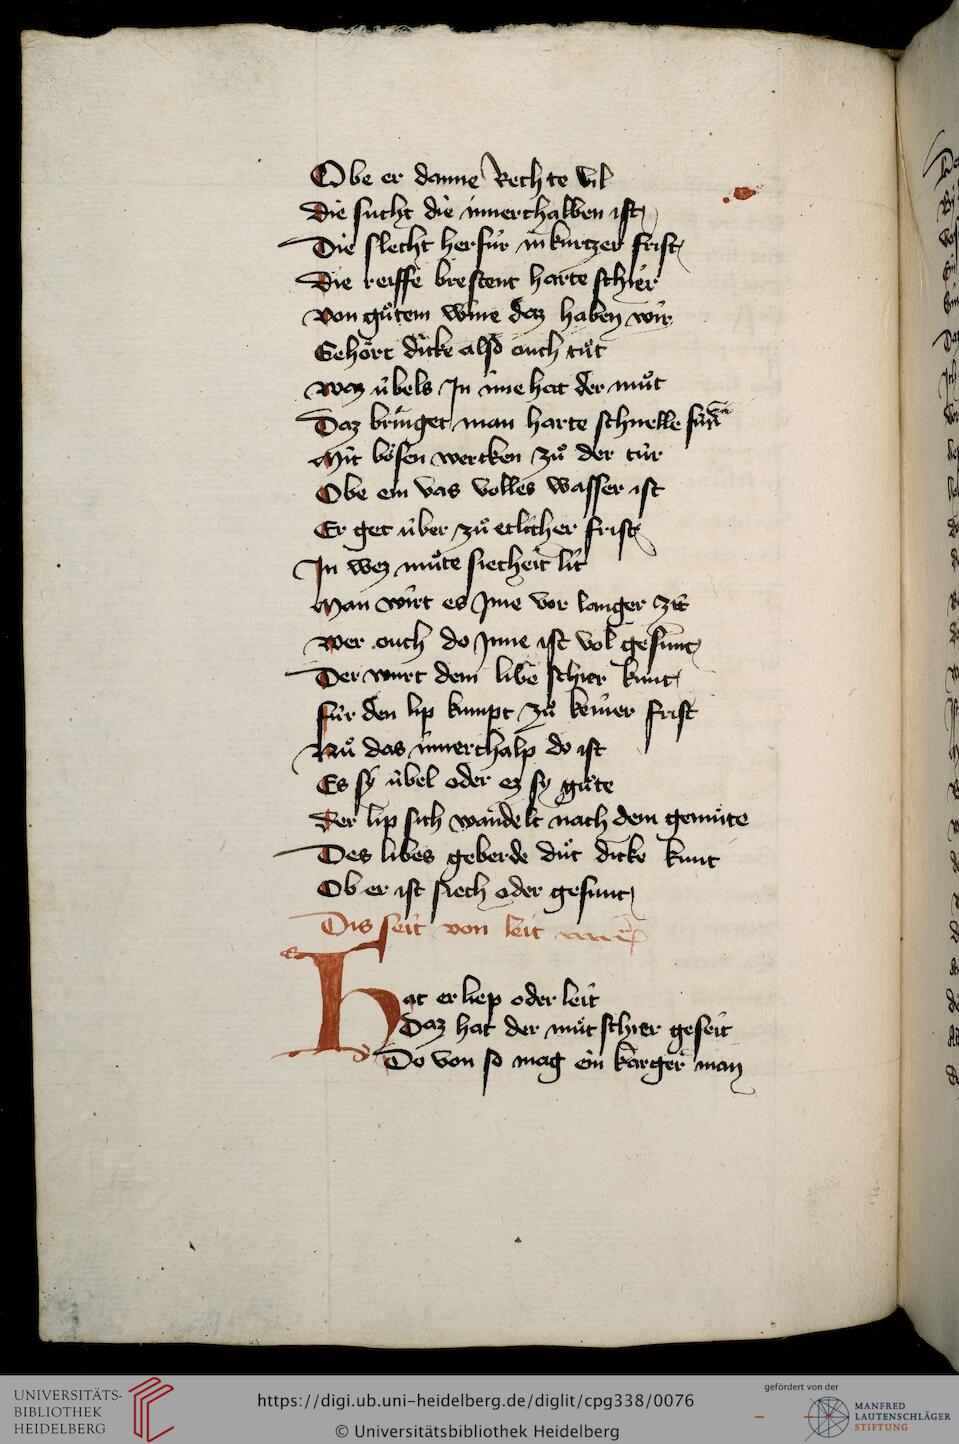 Obe er danne Rechte vil
Die sucht die innerthalben ist
Die slecht herfúr in kurtzer frist
Die reiffe brestent harte schier
von gůtem wine daz haben wir
Gehôrt dicke also ouch tůt
waz úbels In ime hat der můt
Daz bringet man harte schnelle
Mit bôsen wercken zů der túr
Obe ein vas volles wasser ist
Er get úber zů etlicher frist
In wez můte siecheit lit
Man wirt es Ime vor langer zit
wer ouch do Inne ist vol gesunt
Der wurt dem libe schier kunt
fúr den lip kumpt zů keiner frist
Nů das innerthalp do ist
Es sÿ úbel oder ez sy gůte
Der lip sich wandelt nach dem gemůte
Des libes geberde důt dicke kunt
Ob er ist siech oder gesunt
Dis seit von leit
Hat er liep oder leit
Daz hat der můt schier geseit
Do von so mag ein karger man
UNIVERSITÄTS-
BIBLIOTHEK
HEIDELBERG
https://digi.ub.uni-heidelberg.de/diglit/cpg338/0076
© Universitätsbibliothek Heidelberg
gefördert von der
MANFRED
LAUTENSCHLÄGER
STIFTUNG